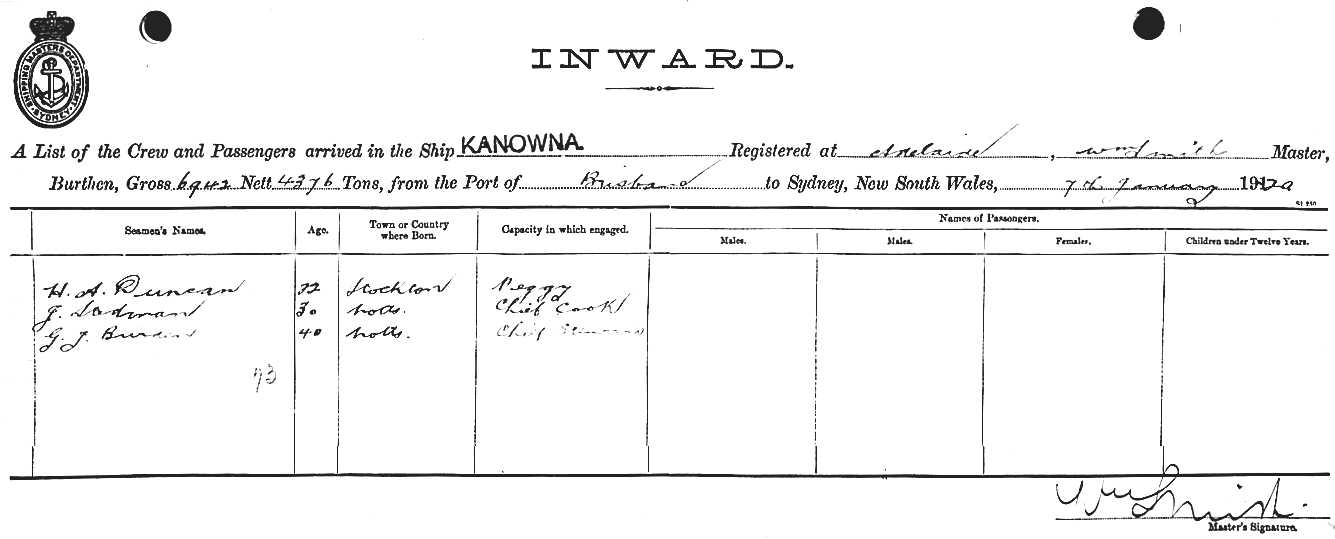 SHIPPING MASTERS DEPARTMENT SYDNEY
INWARD.
A List of the Crew and Passengers arrived in the Ship KANOWNA. Registered at Adelaide, Wm Smith Master,
Burthen, Gross 6942 Nett 4376 Tons, from the Port of Brisbane to Sydney, New South Wales, 7th January 1920
Names of Passengers.
Seamen's Names. Age. Town or Country where Born. Capacity in which engaged. Males. Males. Females. Children under Twelve Years.
H. A. Duncan 22 Stockton Peggy
J. 30 Notts. Chief Cook
G. J. 40 Notts. Chief Steward
73
Wm Smith.
Master's Signature.